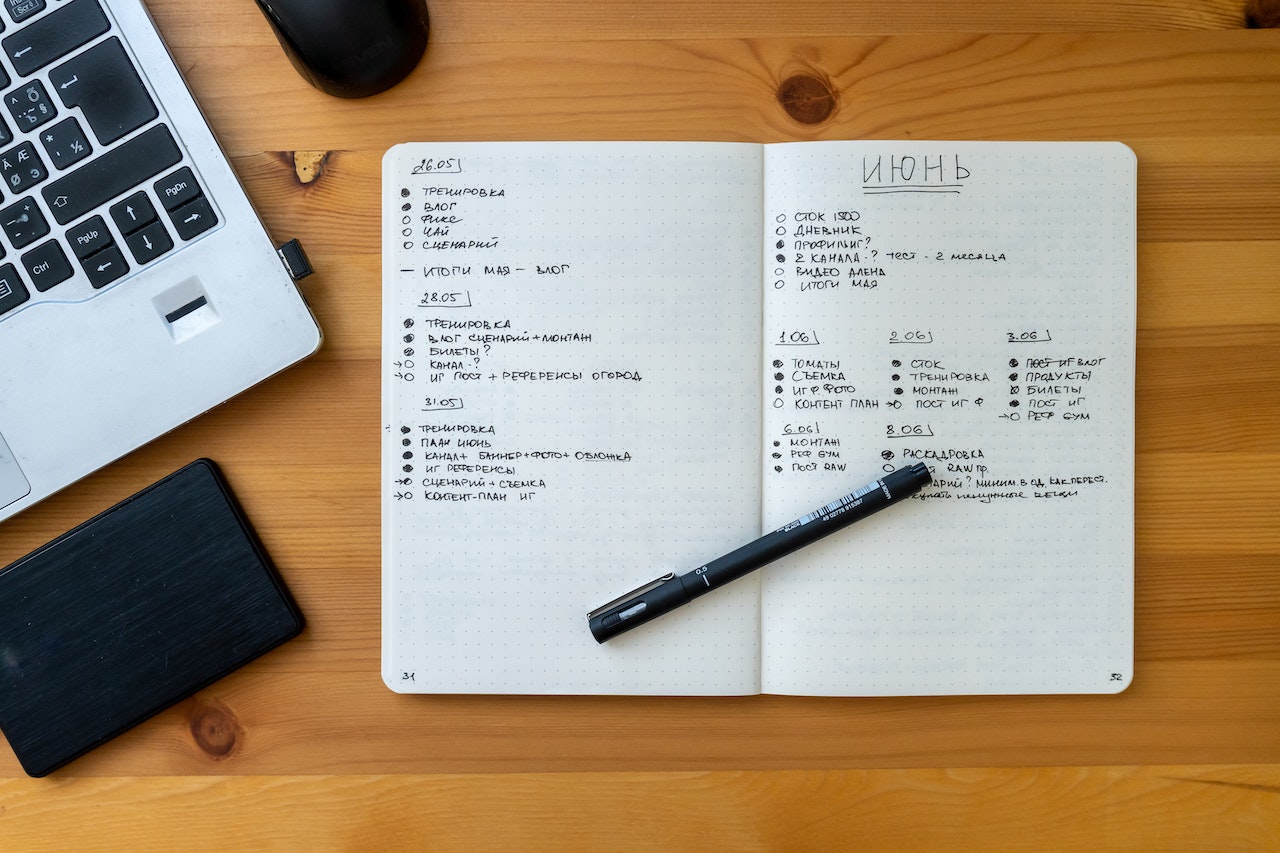 26.05
ТРЕНИРОВКА
ВЛОГ
ФИКС
ЧАЙ
СЦЕНАРИЙ
— ИТОГИ МАЯ – ВЛОГ
28.05
ТРЕНИРОВКА
ВЛОГ СЦЕНАРИЙ + МОНТАЖ
БИЛЕТЫ?
КАНАЛ - ?
ИГ ПОСТ + РЕФЕРЕНСЫ ОГОРОД
31.05
ТРЕНИРОВКА
ПЛАН ИЮНЬ
КАНАЛ + БАННЕР + ФОТО + ОБЛОЖКА
ИГ РЕФЕРЕНСЫ
СЦЕНАРИЙ + СЪЕМКА
КОНТЕНТ-ПЛАН ИГ
31
ИЮНЬ
СТОК 1500
ДНЕВНИК
ПРОФИЛЬ ИГ?
2 КАНАЛА - ? тест - 2 месяца
ВИДЕО АЛЕНА
ИТОГИ МАЯ
1.06
ТОМАТЫ
СЪЕМКА
ИГ Ф. ФОТО
КОНТЕНТ ПЛАН
2.06
СТОК
ТРЕНИРОВКА
МОНТАЖ
ПОСТ ИГ Ф
3.06
ПОСТ ИГ ВЛОГ
ПРОДУКТЫ
БИЛЕТЫ
ПОСТ ИГ
РЕФ GYM
6.06
МОНТАЖ
РЕФ GYM
ПОСТ RAW
8.06
РАСКАДРОВКА
RAW
МИНИМ. В ОД. КАК ПЕРЕСТ.
ненужные вещи
32
0.5
MADE IN JAPAN
49 02778 915387
Ctrl
PgUp
PgDn
←
↑
↓
→
SVEN